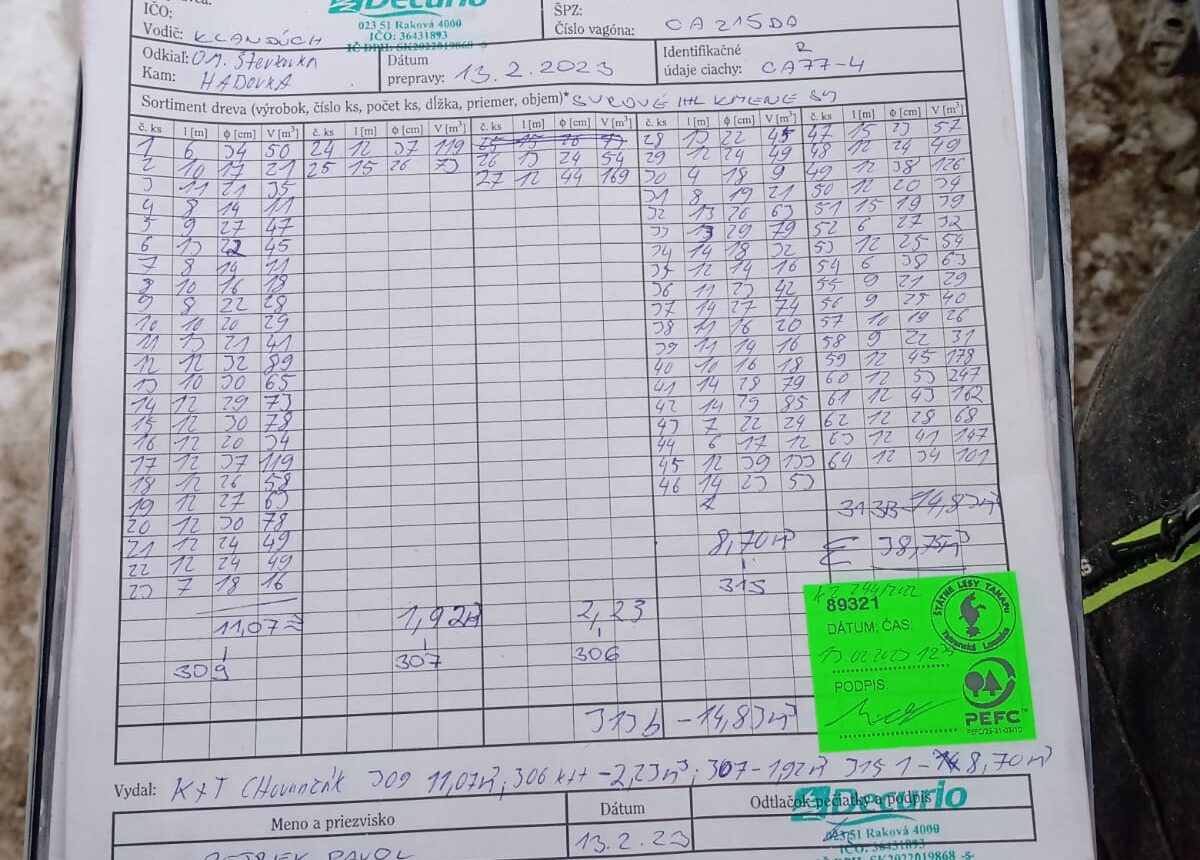 Decurio
023 51 Raková 4000
IČO: 36431893
IČ DPH: SK2022019868 -5-
IČO:
ŠPZ:
Vodič: KLANDÚCH
Číslo vagóna: CA 215DD
Odkiaľ: OM. Števkovka
Kam: HADOVKA
Dátum prepravy: 13.2.2023
Identifikačné údaje ciachy: R CA77-4
Sortiment dreva (výrobok, číslo ks, počet ks, dĺžka, priemer, objem)* SUROVÉ IHL KMENE SM
č. ks l [m] ϕ [cm] V [m³] č. ks l [m] ϕ [cm] V [m³] č. ks l [m] ϕ [cm] V [m³] č. ks l [m] ϕ [cm] V [m³] č. ks l [m] ϕ [cm] V [m³]
1 6 34 50 24 12 37 119 28 13 22 45 47 15 23 57
2 10 17 21 25 15 26 73 26 13 24 54 29 12 24 49 48 12 24 49
3 11 21 35 27 12 44 169 30 4 18 9 49 12 38 126
4 8 14 11 31 8 19 21 50 12 20 34
5 9 27 47 32 13 26 63 51 15 19 39
6 13 22 45 33 13 29 79 52 6 27 32
7 8 14 11 34 14 18 32 53 12 25 54
8 10 16 18 35 12 14 16 54 6 38 63
9 8 22 28 36 11 23 42 55 9 21 29
10 10 20 29 37 14 27 74 56 9 25 40
11 13 21 41 38 11 16 20 57 10 19 26
12 12 32 89 39 11 14 16 58 9 22 31
13 10 30 65 40 10 16 18 59 12 45 178
14 12 29 73 41 14 28 79 60 12 53 247
15 12 30 78 42 14 29 85 61 12 43 162
16 12 20 34 43 7 22 24 62 12 28 68
17 12 37 119 44 6 17 12 63 12 41 147
18 12 26 58 45 12 39 133 64 12 34 101
19 12 27 63 46 14 23 53
20 12 30 78
21 12 24 49
22 12 24 49
23 7 18 16
313B-14,83m³
8,70m³ Σ 38,75m³
315
11,07 1,92m³ 2,23
309 307 306
313b - 14,83m³
89321
DÁTUM; ČAS:
13.02.2023
PODPIS:
ŠTÁTNE LESY TANAPU
Tatranská Lomnica
PEFC™
Vydal: K+T CHovančák 309 11,07m³; 306 k++ -2,23m³; 307-1,92m³ 315 1- 8,70m³
Meno a priezvisko
Dátum
Odtlačok pečiatky a podpis
PAVOL
13.2.23
Decurio
023 51 Raková 4000
IČO: 36431893
IČ DPH: SK2022019868 -5-